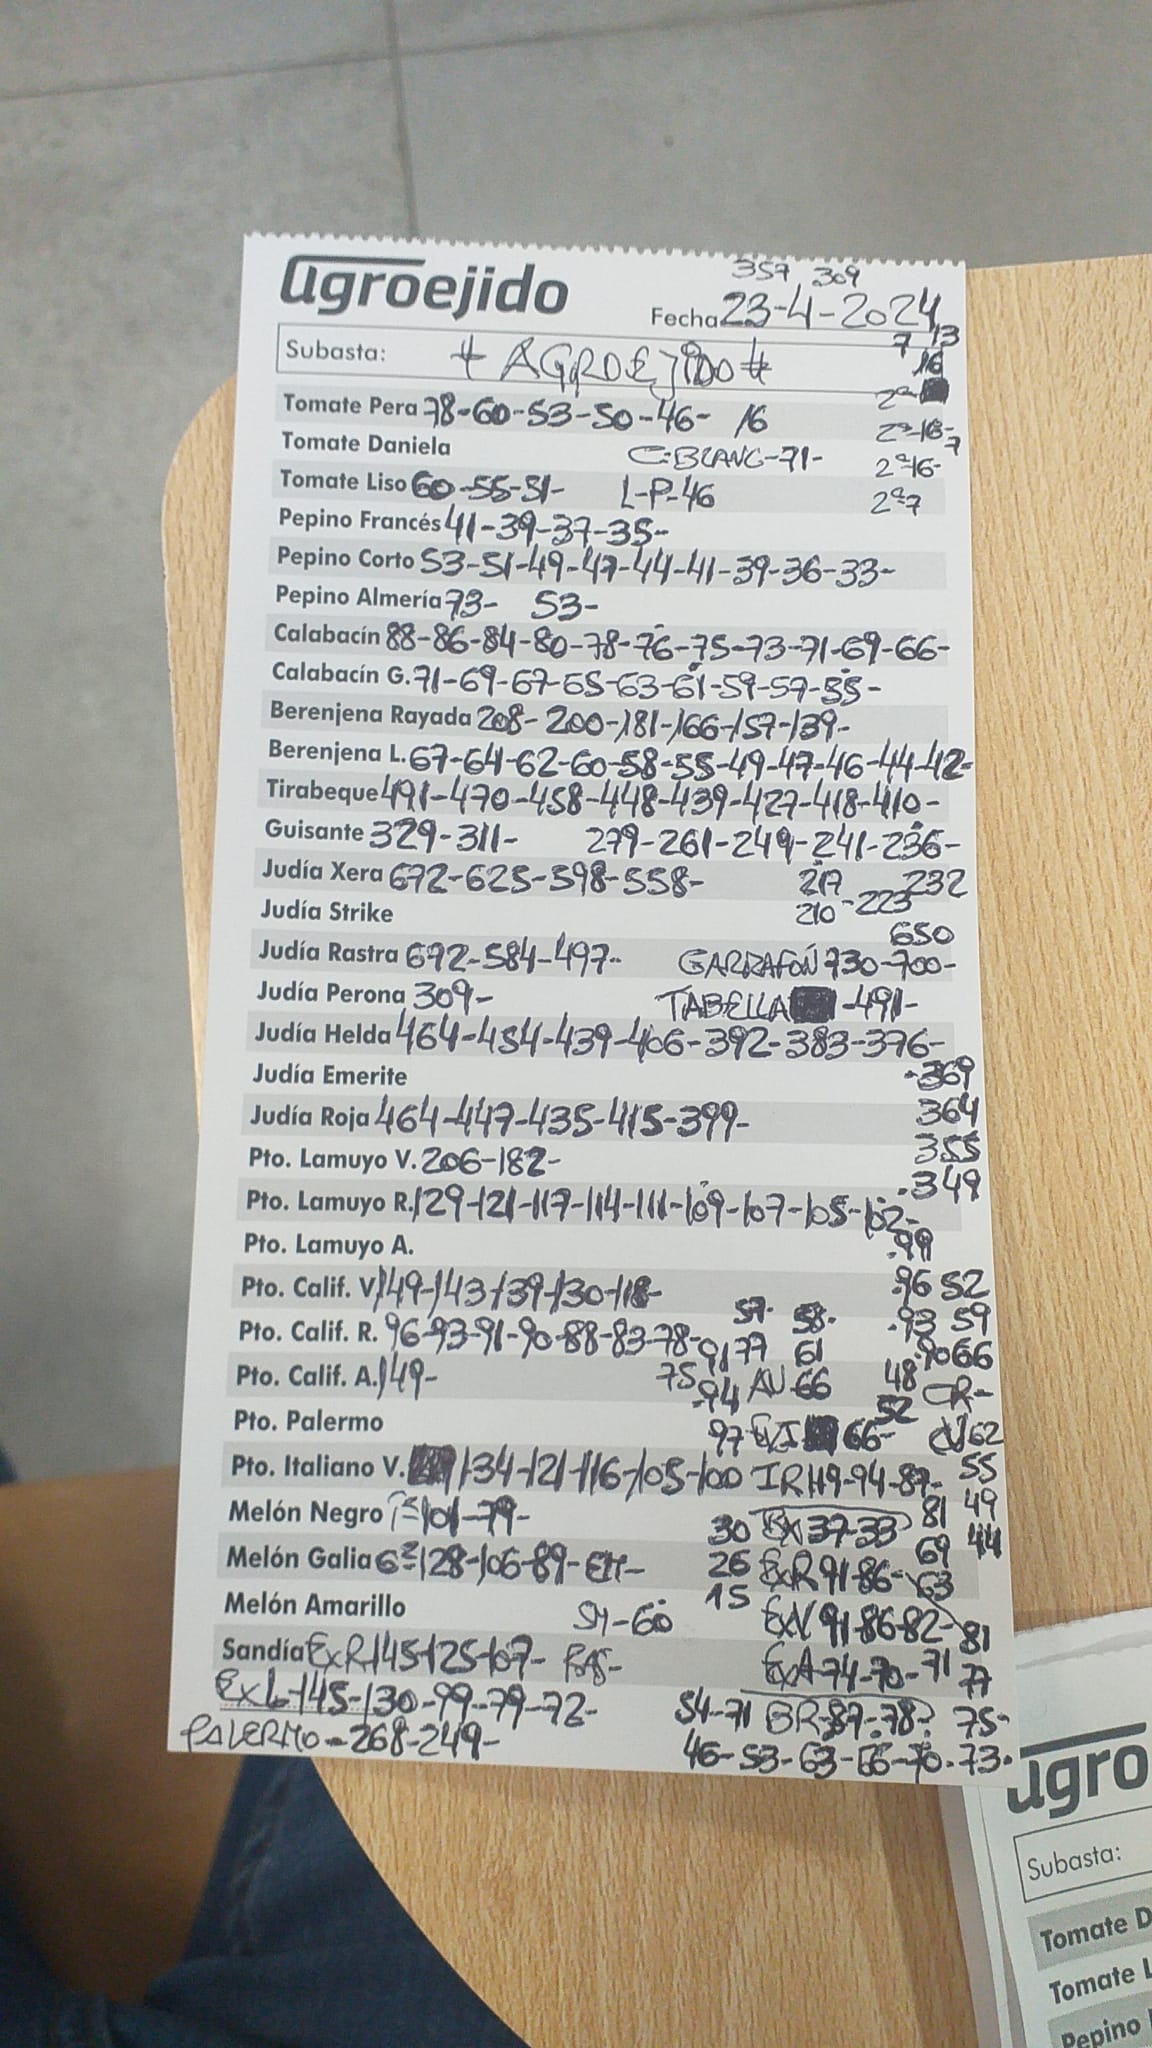 agroejido
357 309
Fecha 23-4-2024
7 13
16
Subasta: # AGROEJIDO #
2ª-
Tomate Pera 78-60-53-50-46- 16
2ª-16-7
Tomate Daniela C-BLANC-71-
2ª-16-
Tomate Liso 60-55-51- L-P-46
2ª-7
Pepino Francés 41-39-37-35-
Pepino Corto 53-51-49-47-44-41-39-36-33-
Pepino Almería 73- 53-
Calabacín 88-86-84-80-78-76-75-73-71-69-66-
Calabacín G. 71-69-67-65-63-61-59-57-55-
Berenjena Rayada 208-200-181-166-157-139-
Berenjena L. 67-64-62-60-58-55-49-47-46-44-42-
Tirabeque 491-470-458-448-439-427-418-410-
Guisante 329-311- 279-261-249-241-236-
Judía Xera 672-625-598-558- 217 232
Judía Strike 210-223
650
Judía Rastra 672-584-497- GARRAFÓN 730-700-
Judía Perona 309- TABELLA -491-
Judía Helda 464-454-439-406-392-383-376-
Judía Emerite -369
364
Judía Roja 464-447-435-415-399-
355
Pto. Lamuyo V. 206-182-
.349
Pto. Lamuyo R. 129-121-117-114-111-109-107-105-102-
Pto. Lamuyo A. .99
.96 52
Pto. Calif. V. 149-143-139-130-118-
57- 58- .93 59
Pto. Calif. R. 96-93-91-90-88-83-78- 91 77 61 .90 66
Pto. Calif. A. 149- 75 .94 AV 66 48 CR-
52
Pto. Palermo 97 66- CV 62
Pto. Italiano V. 134-121-116-105-100 IR 119-94-87- 55
81 49
Melón Negro 101-79- 30 EX 37-33
69 44
Melón Galia 6ª-128-106-89- 26 EXR 91-86- 63
15
Melón Amarillo 60 EXV 91-86-82- 81
Sandía EXR 145-125-107- EXA-74-70-71 77
EXL-145-130-99-79-72- 54-71 BR-87-78- 75-
PALERMO-268-249- 46-53-63-66-70-73.
agro
Subasta:
Tomate D
Tomate L
Pepino